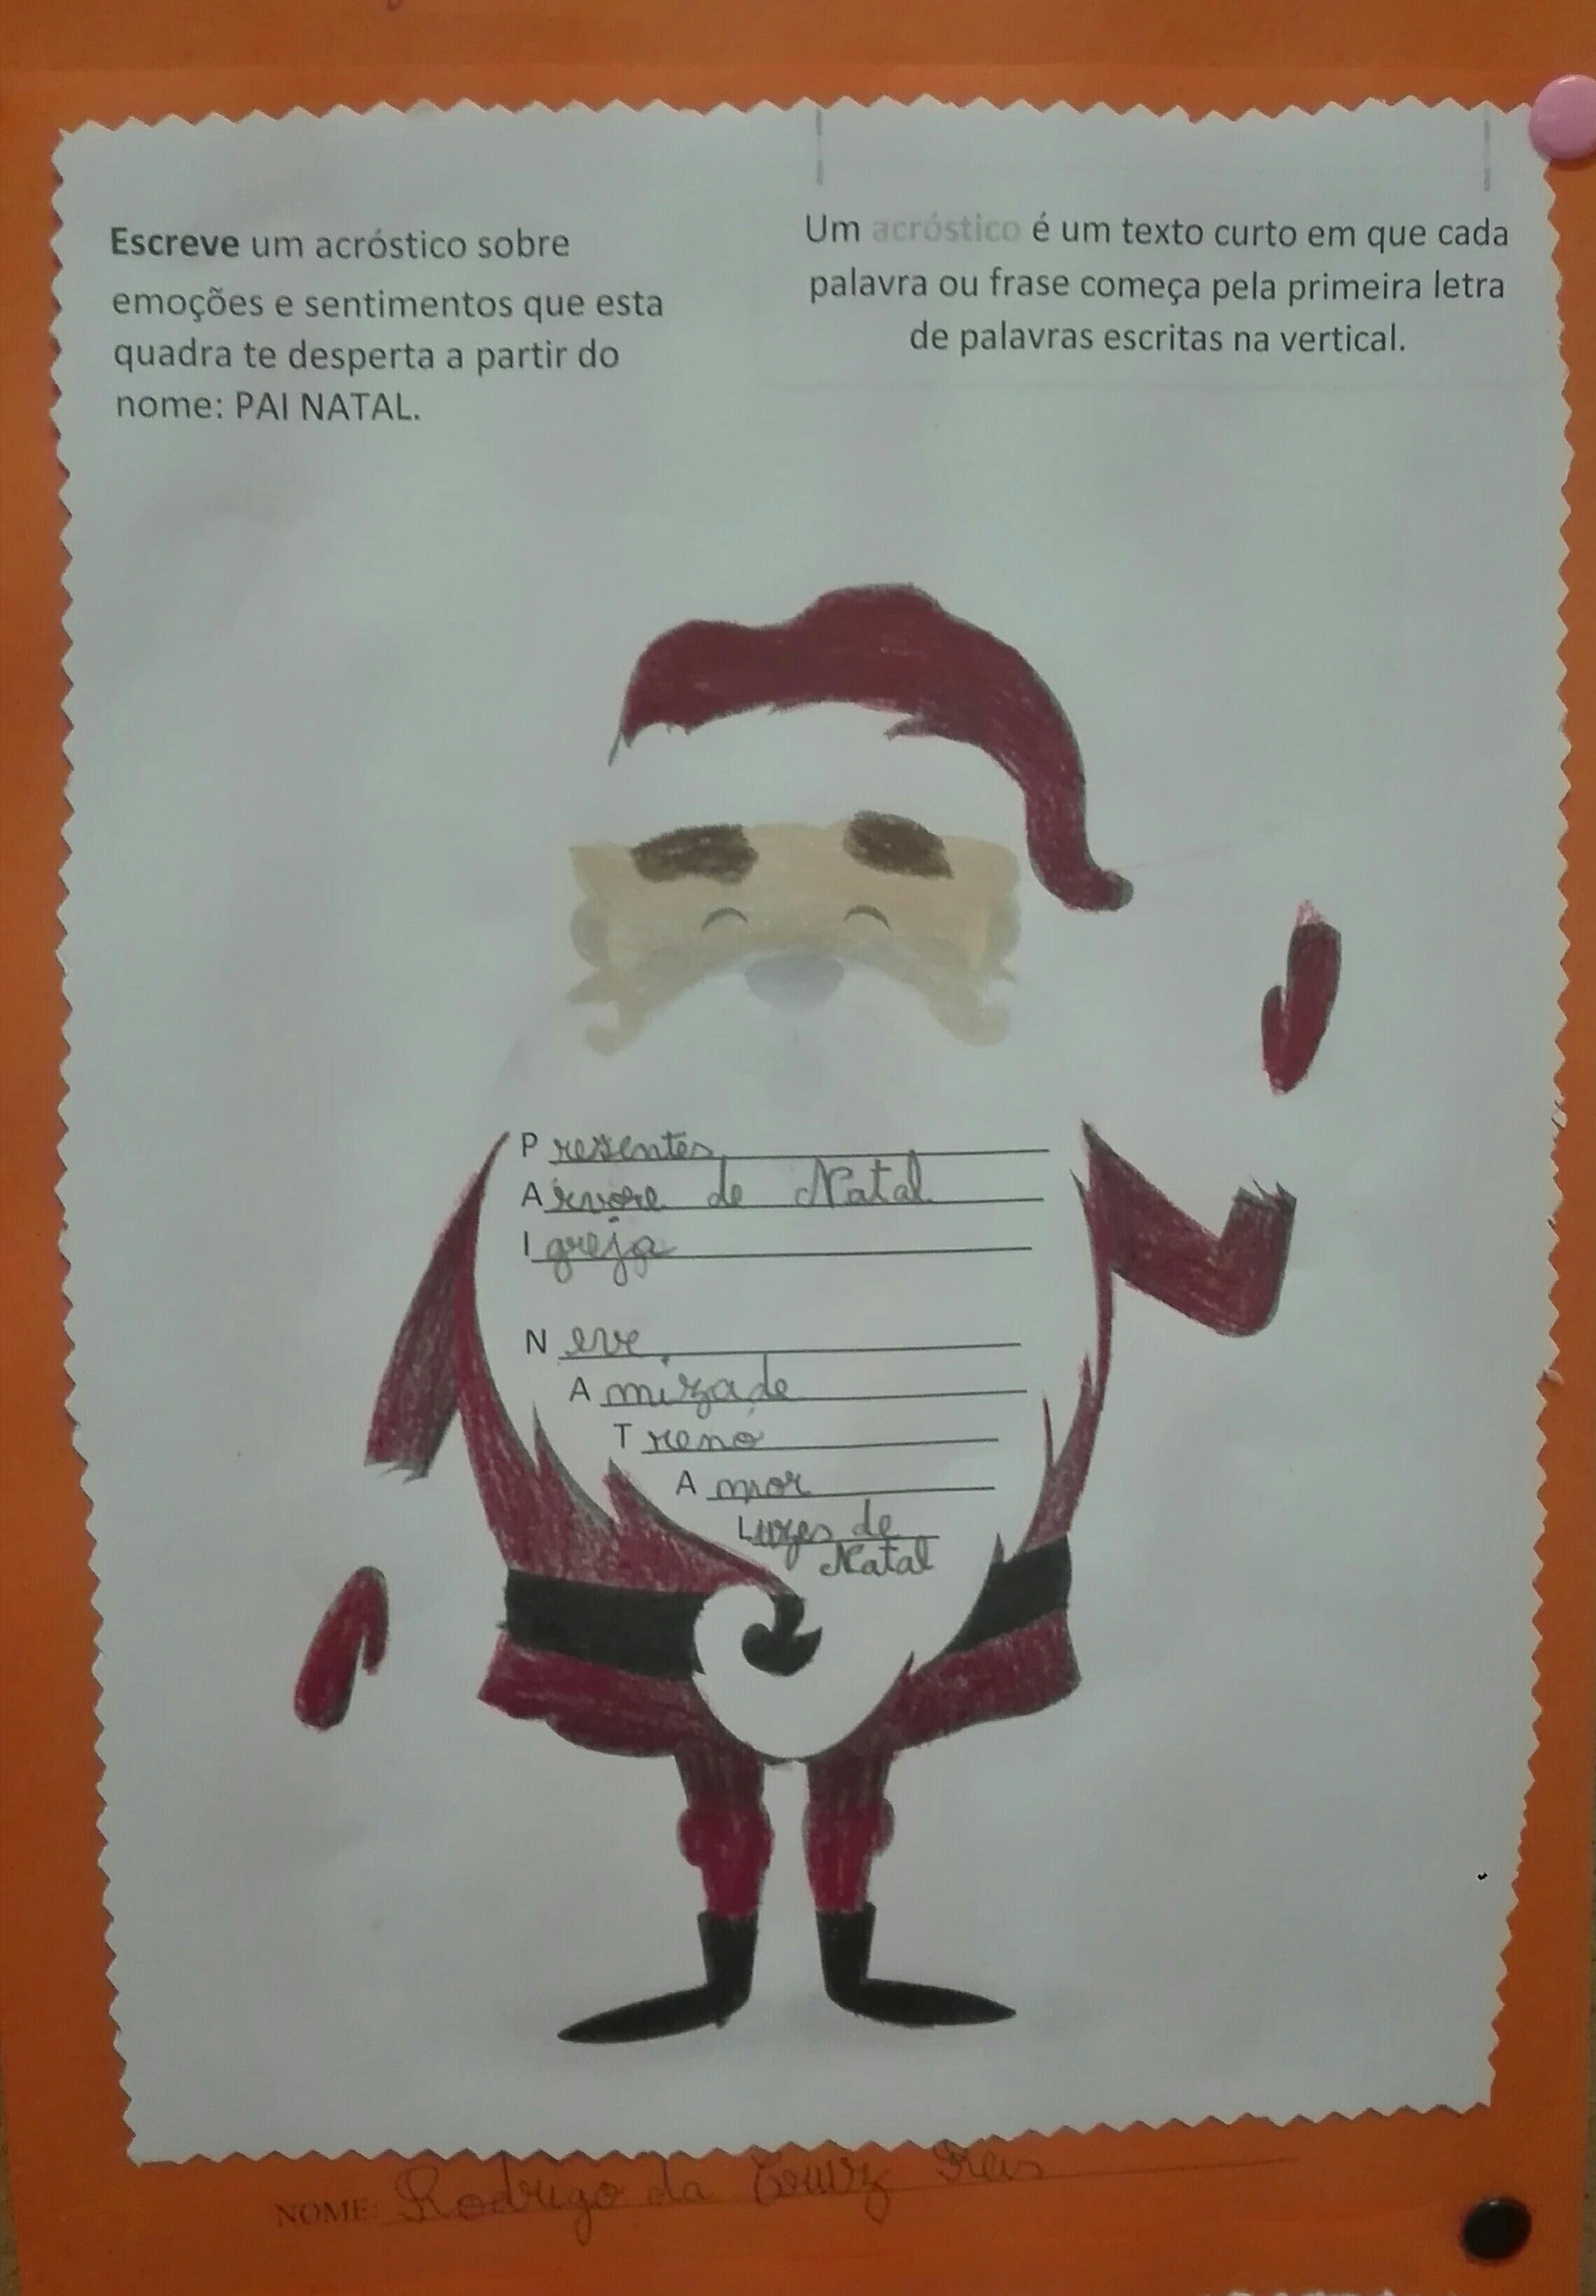 Escreve um acróstico sobre
emoções e sentimentos que esta
quadra te desperta a partir do
nome: PAI NATAL.
Um acróstico é um texto curto em que cada
palavra ou frase começa pela primeira letra
de palavras escritas na vertical.
Presentes
Árvore de Natal
Igreja
Neve
Amizade
Trenó
Amor
Luzes de
Natal
NOME: Rodrigo da Cruz Reis